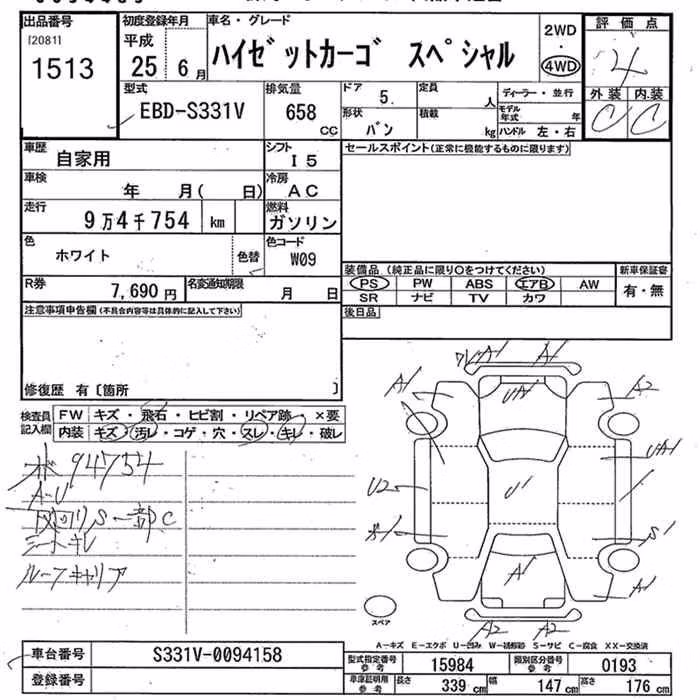 出品番号
[2081]
1513
初度登録年月
平成
25 6月
車名・グレード
ハイゼットカーゴ スペシャル
2WD
・
4WD
評価点
4
外装 内装
C C
型式
EBD-S331V
排気量
658 cc
ドア 5.
定員 人
形状 バン
積載 kg
ディーラー・並行
モデル年式 年
ハンドル 左・右
車歴
自家用
シフト
I5
車検
年 月( 日)
冷房
AC
走行
9万4千754 km
燃料
ガソリン
色
ホワイト
色替
色コード
W09
R券
7,690円
名変通知期限
月 日
セールスポイント(正常に機能するものに限ります)
装備品(純正品に限り○をつけてください)
PS PW ABS エアB AW
SR ナビ TV カワ
新車保証書
有・無
後日品
注意事項申告欄(不具合内容等は具体的に記入して下さい)
修復歴 有〔箇所 〕
検査員記入欄
FW キズ・飛石・ヒビ割・リペア跡・×要
内装 キズ・汚レ・コゲ・穴・スレ・キレ・破レ
94754
A-U
S一部C
シートキレ
ルーフキャリア
A1
A1
A1
A2
UA1
U2
U1
S1
A1
A1
A2
A2
スペア
A-キズ E-エクボ U-凹み W-補修跡 S-サビ C-腐食 XX-交換済
車台番号
S331V-0094158
登録番号
型式指定番号参考
15984
類別区分番号参考
0193
車庫証明用参考
長さ 339cm
幅 147cm
高さ 176cm